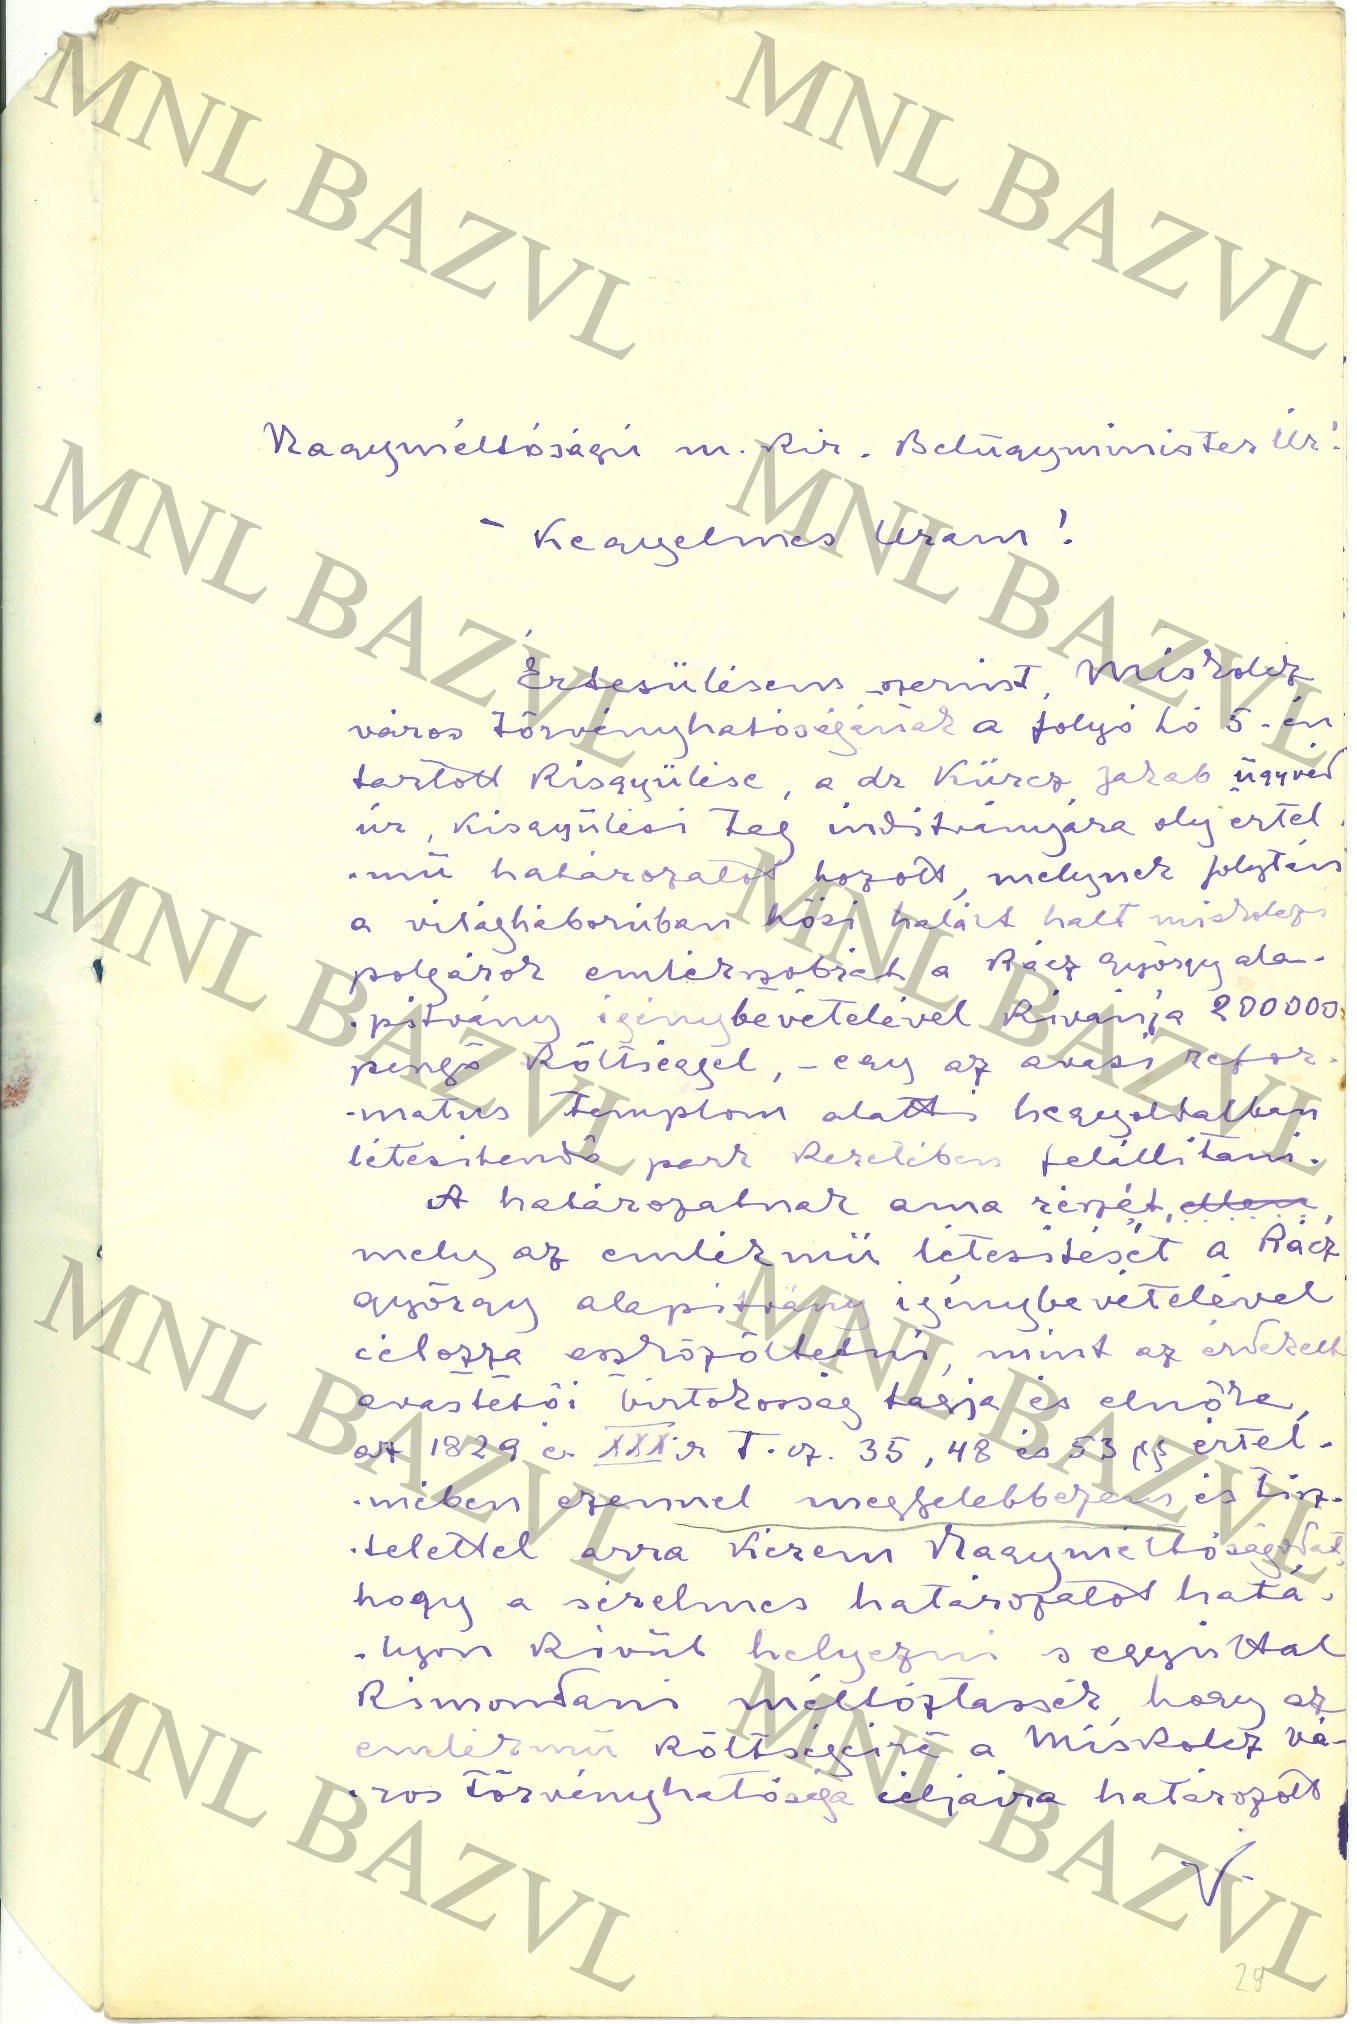 Nagyméltóságú m. kir. Belügyminister Úr!
- Kegyelmes Uram!
Értesülésem szerint, Miskolcz
város törvényhatóságának a folyó hó 5-én
tartott kisgyülése, a dr Kürcz Jakab ügyvéd
úr, kisgyülési tag inditványára oly értel-
-mü határozatot hozott, melynek folytán
a világháborúban hősi halált halt miskolczi
polgárok emlékszobrát a Rácz György ala-
-pitvány igénybevételével kivánja 200000
pengő költséggel, - egy az avasi refor-
-matus templom alatti hegyoldalban
létesitendő park keretében felállitani.
A határozatnak ama részét, ellen,
mely az emlékmü létesitését a Rácz
György alapitvány igénybevételével
célozza eszközöltetni, mint az érdekelt
avastetői birtokosság tagja és elnöke,
az 1929 é. XXX.k T. cz. 35, 48 és 53 §§ értel-
-mében ezennel megfelebbezem és tisz-
-telettel arra kérem Nagyméltóságodat,
hogy a sérelmes határozatot hatá-
-lyon kivül helyezni s egyuttal
kimondani méltóztassék, hogy az
emlékmü költségeire a Miskolcz vá-
-ros törvényhatósága céljaira határozott
29
MNL BAZVL
MNL BAZVL
MNL BAZVL
MNL BAZVL
MNL BAZVL
MNL BAZVL
MNL BAZVL
MNL BAZVL
MNL BAZVL
MNL BAZVL